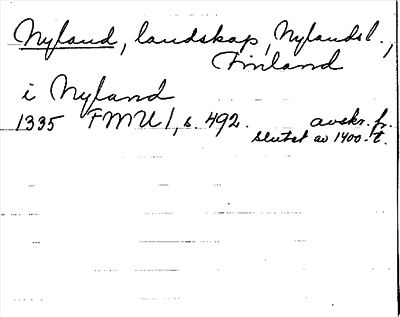 Nyland, landskap, Nylandsl.,
Finland
i Nyland
1335 FMU 1, s. 492. avskr. fr.
slutet av 1400-t.